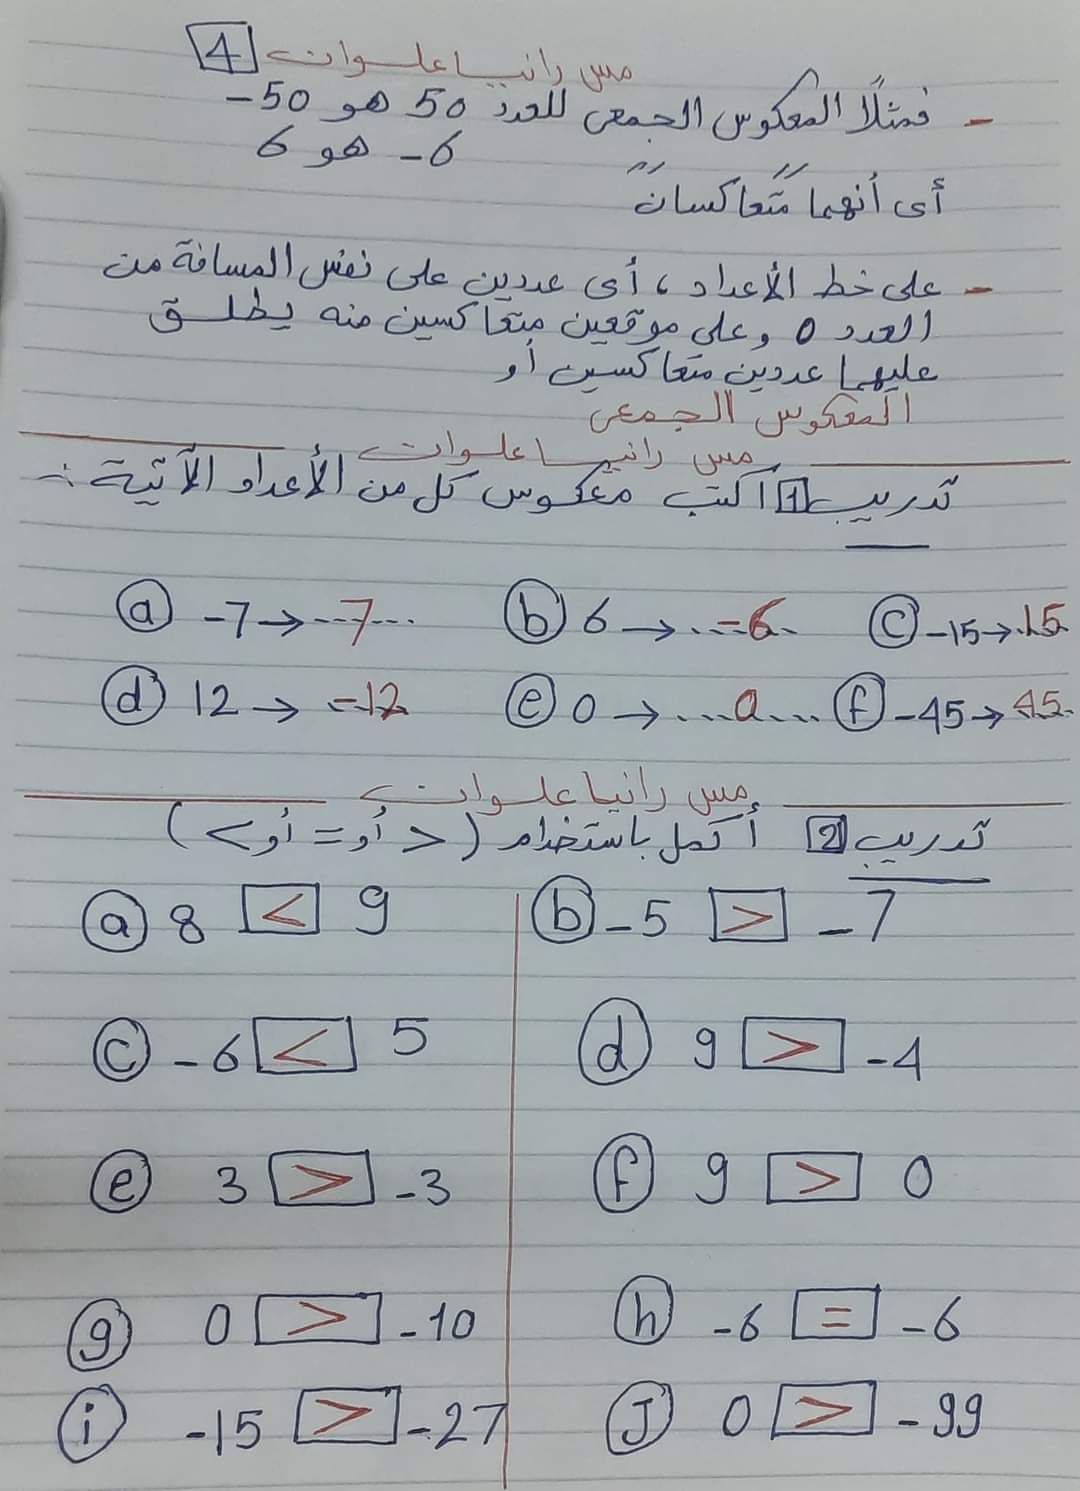 مس رانيا علوان 4
- فمثلًا المعكوس الجمعى للعدد 50 هو 50-
6- هو 6
أى أنهما مُتعاكسان
- على خط الأعداد ، أى عددين على نفس المسافة من
العدد 0 وعلى موقعين متعاكسين منه يطلق
عليهما عددين متعاكسين أو
المعكوس الجمعى
مس رانيا علوان
تدريب 1 اكتب معكوس كل من الأعداد الآتية :-
a -7 → ...7... b 6 → ...-6... c -15 → 15
d 12 → -12 e 0 → ...0... f -45 → 45
مس رانيا علوان
تدريب 2 أكمل باستخدام ( > أو = أو < )
a 8 < 9 b -5 > -7
c -6 < 5 d 9 > -4
e 3 > -3 f 9 > 0
g 0 > -10 h -6 = -6
i -15 > -27 J 0 > -99